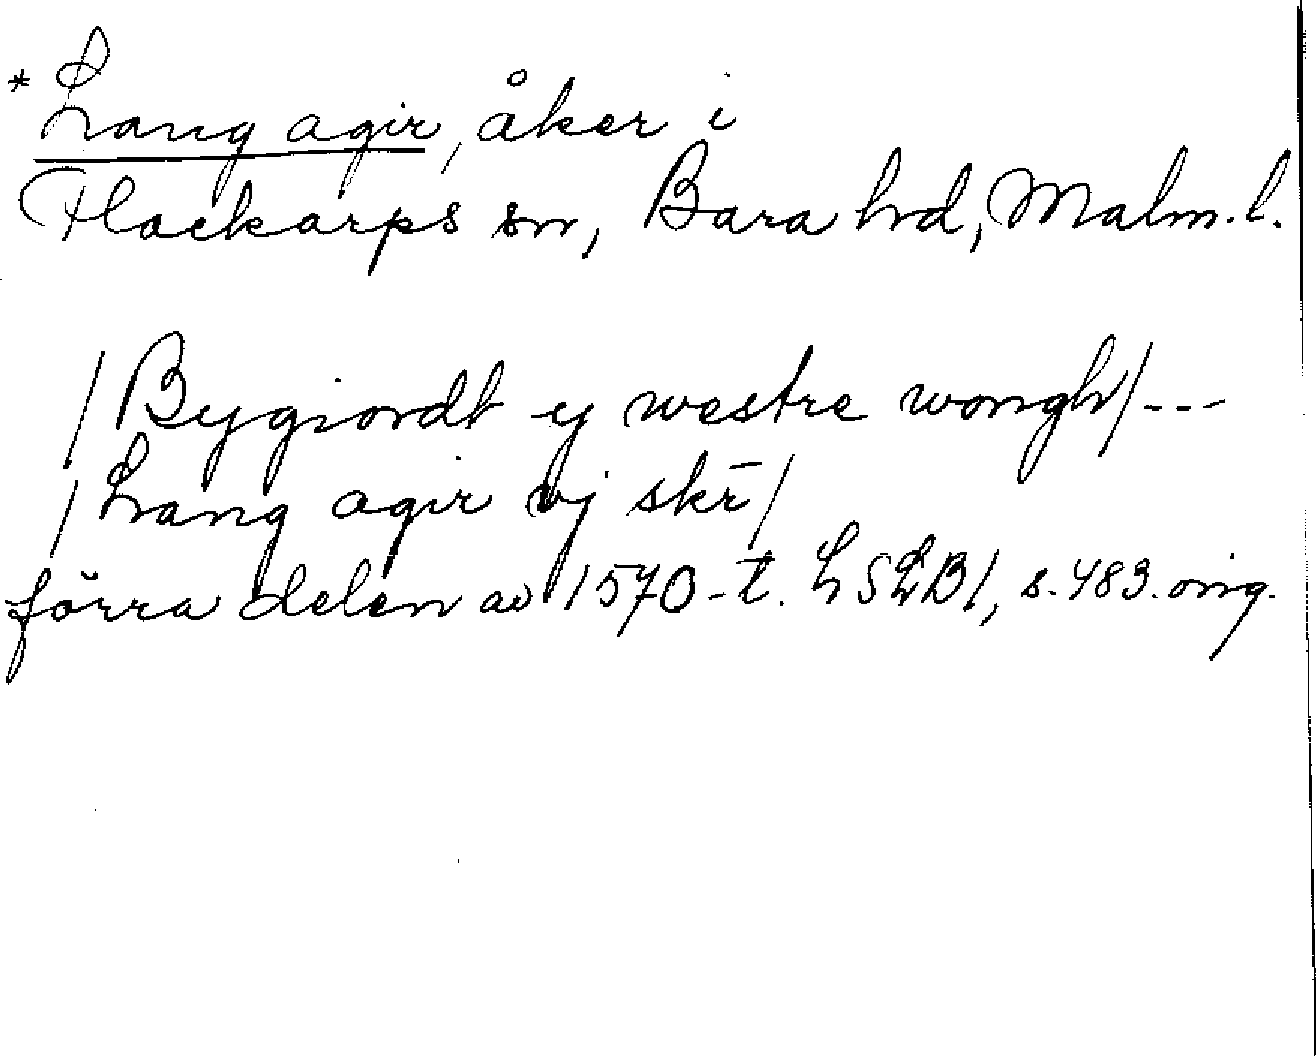 * Lang agir, åker i
Flackarps sn, Bara hd, Malm. l.
/Bygiordt ej westre wongh/---
/Lang agir vj skr̄/
förra delen av 1570-t. LSLB1, s. 483. orig.